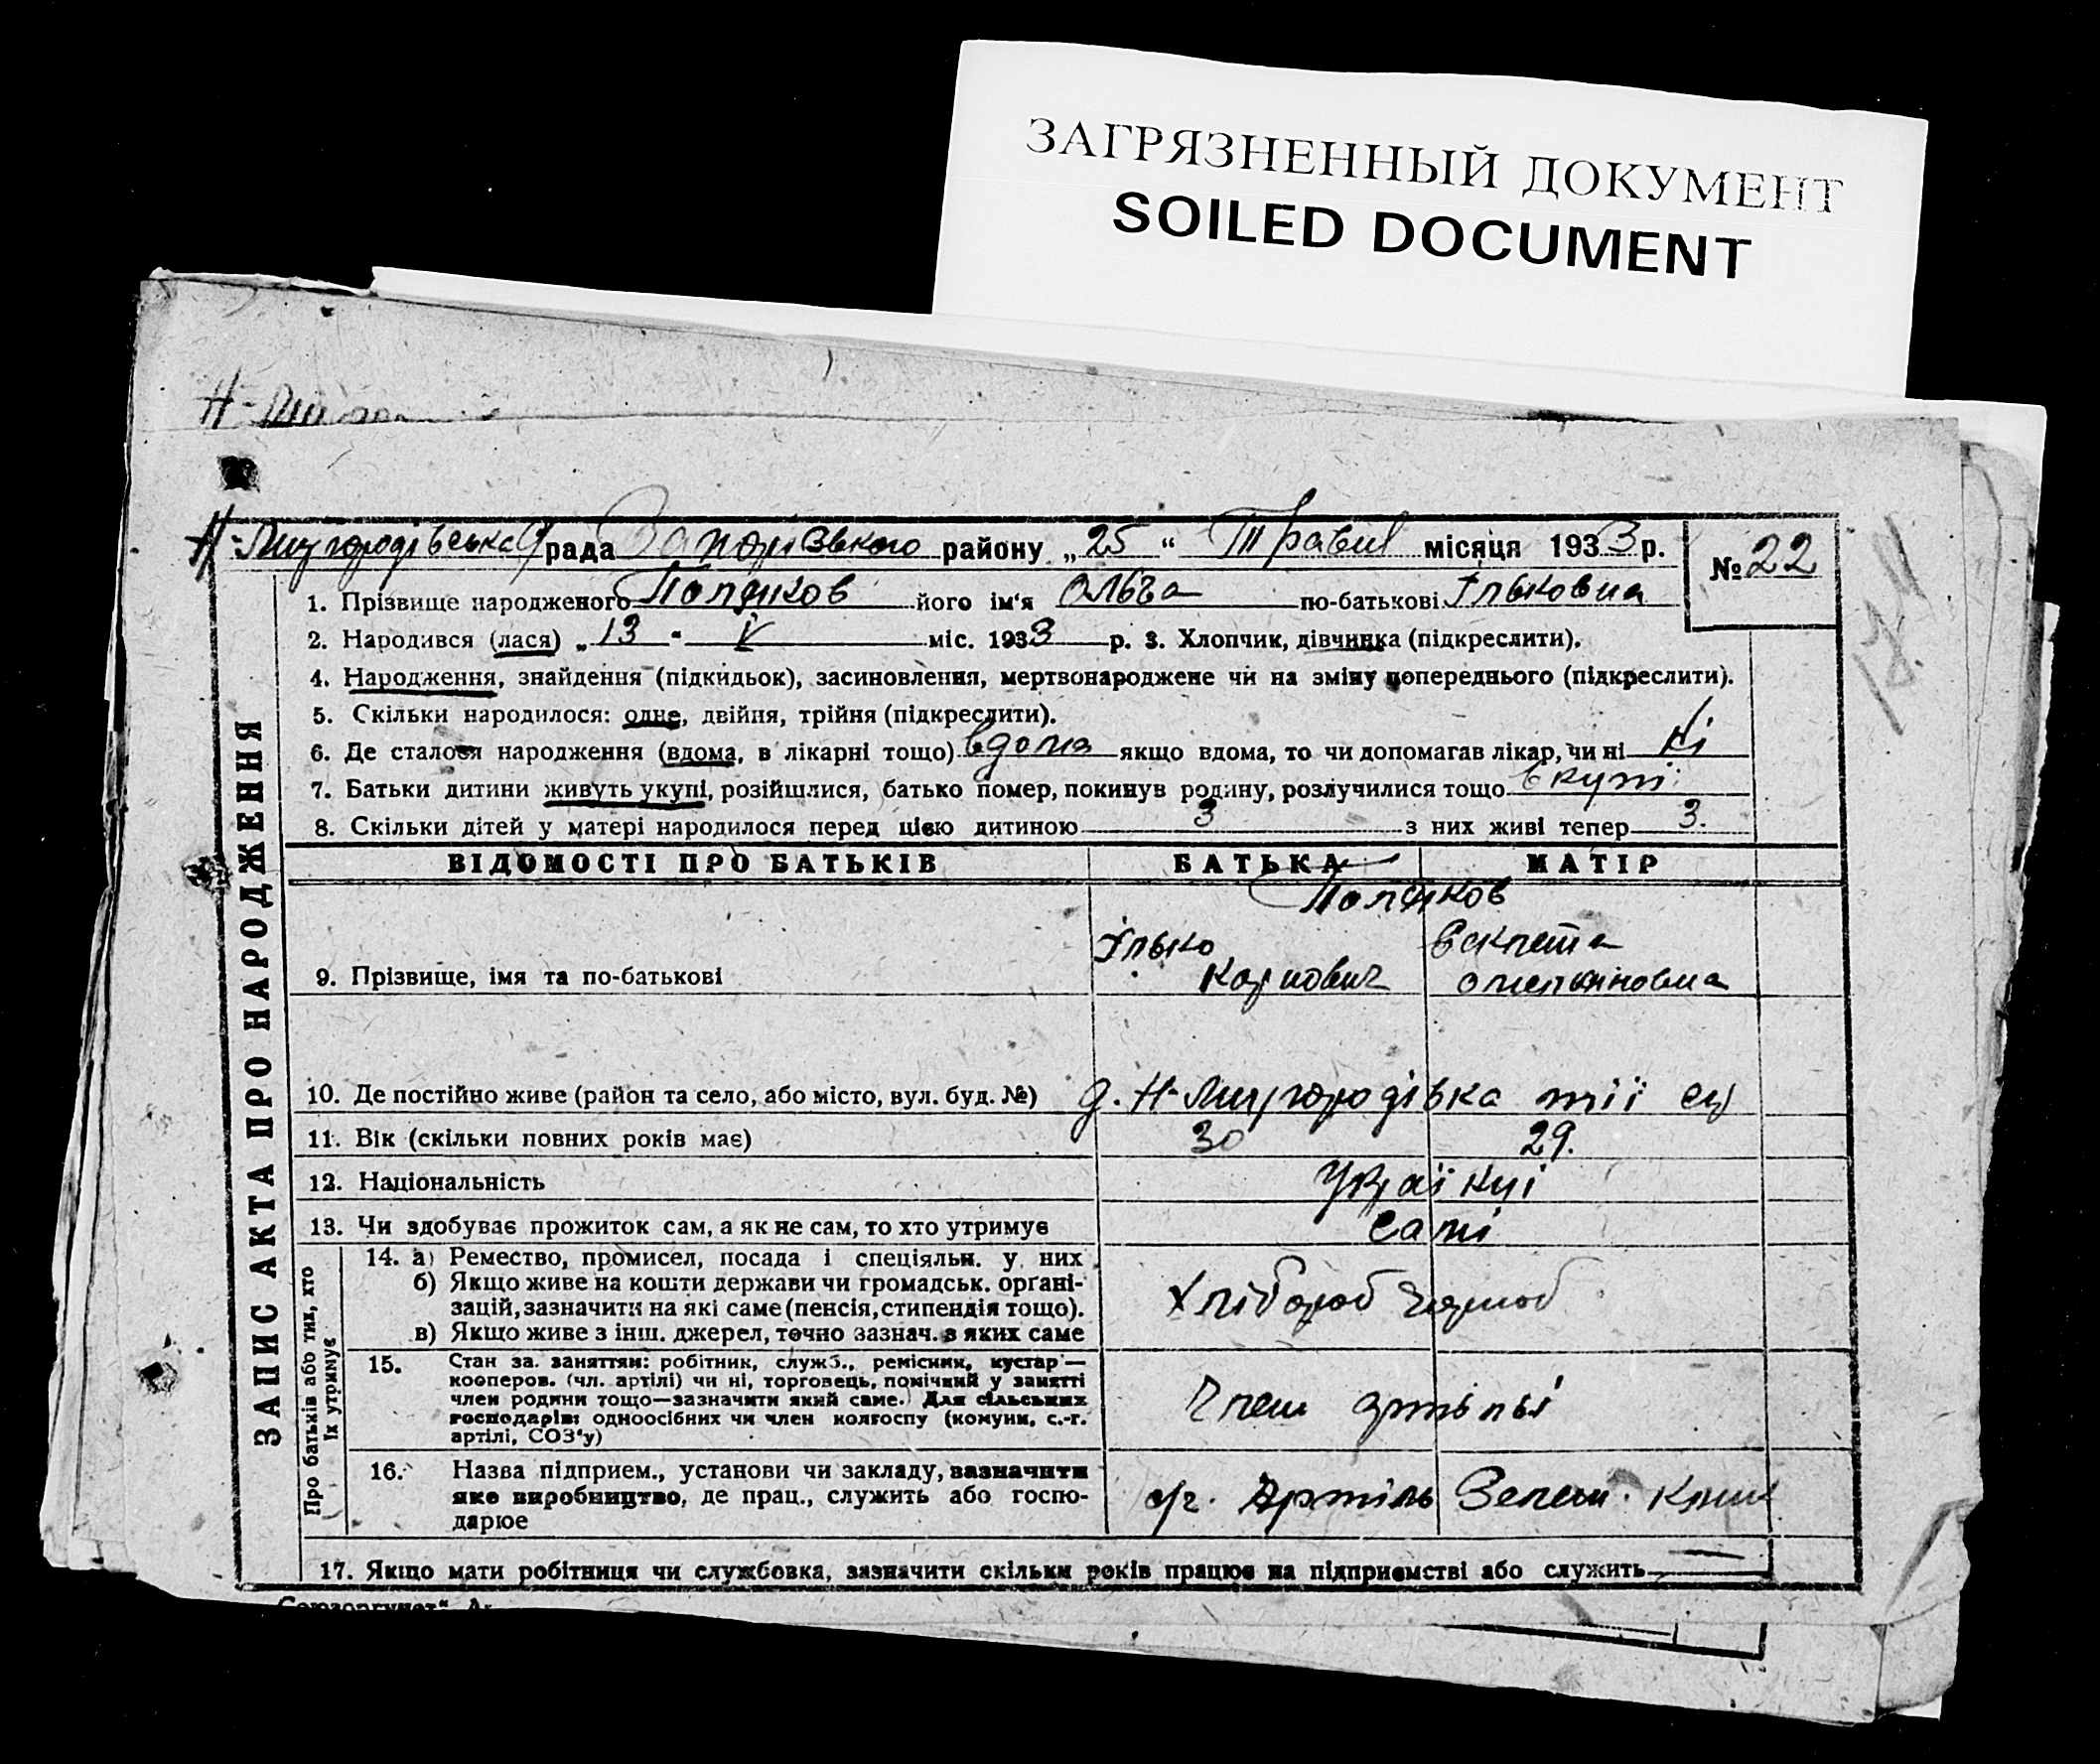 ЗАГРЯЗНЕННЫЙ ДОКУМЕНТ
SOILED DOCUMENT
Н-Миргородівська рада Запорізького району „25“ Травня місяця 1933 р. № 22
1. Прізвище народженого Поляков його ім'я Ольга по-батькові Ільковна
2. Народився (лася) „13" V міс. 1933 р. 3. Хлопчик, дівчинка (підкреслити).
4. Народження, знайдення (підкидьок), засиновлення, мертвонароджене чи на зміну попереднього (підкреслити).
5. Скільки народилося: одне, двійня, трійня (підкреслити).
6. Де сталося народження (вдома, в лікарні тощо) вдома якщо вдома, то чи допомагав лікар, чи ні ні
7. Батьки дитини живуть укупі, розійшлися, батько помер, покинув родину, розлучилися тощо вкупі
8. Скільки дітей у матері народилося перед цією дитиною 3 з них живі тепер 3.
ЗАПИС АКТА ПРО НАРОДЖЕННЯ
ВІДОМОСТІ ПРО БАТЬКІВ БАТЬКА МАТІР
Поляков
Ілько
Карпович
9. Прізвище, імя та по-батькові
10. Де постійно живе (район та село, або місто, вул. буд. №) д. Н-Миргородівка тії
11. Вік (скільки повних років має) 30 29.
12. Національність Українці
13. Чи здобуває прожиток сам, а як не сам, то хто утримує самі
Про батьків або тих, хто їх утримує
14. а) Ремество, промисел, посада і спеціяльн. у них
б) Якщо живе на кошти держави чи громадськ. орґані-
зацій, зазначити на які саме (пенсія, стипендія тощо). Хлібороб
в) Якщо живе з інш. джерел, точно зазнач. з яких саме
15. Стан за заняттям: робітник, служб., ремісник, кустар—
кооперов. (чл. артілі) чи ні, торговець, помічний у занятті
член родини тощо—зазначити який саме. Для сільських
господарів: одноосібних чи член колгоспу (комуни, с.-г.
артілі, СОЗ'у) Член артільі
16. Назва підприєм., установи чи закладу, зазначити
яке виробництво, де прац., служить або госпо-
дарює с/г. Артіль Зелен.
17. Якщо мати робітниця чи службовка, зазначити скільки років працює на підприємстві або служить